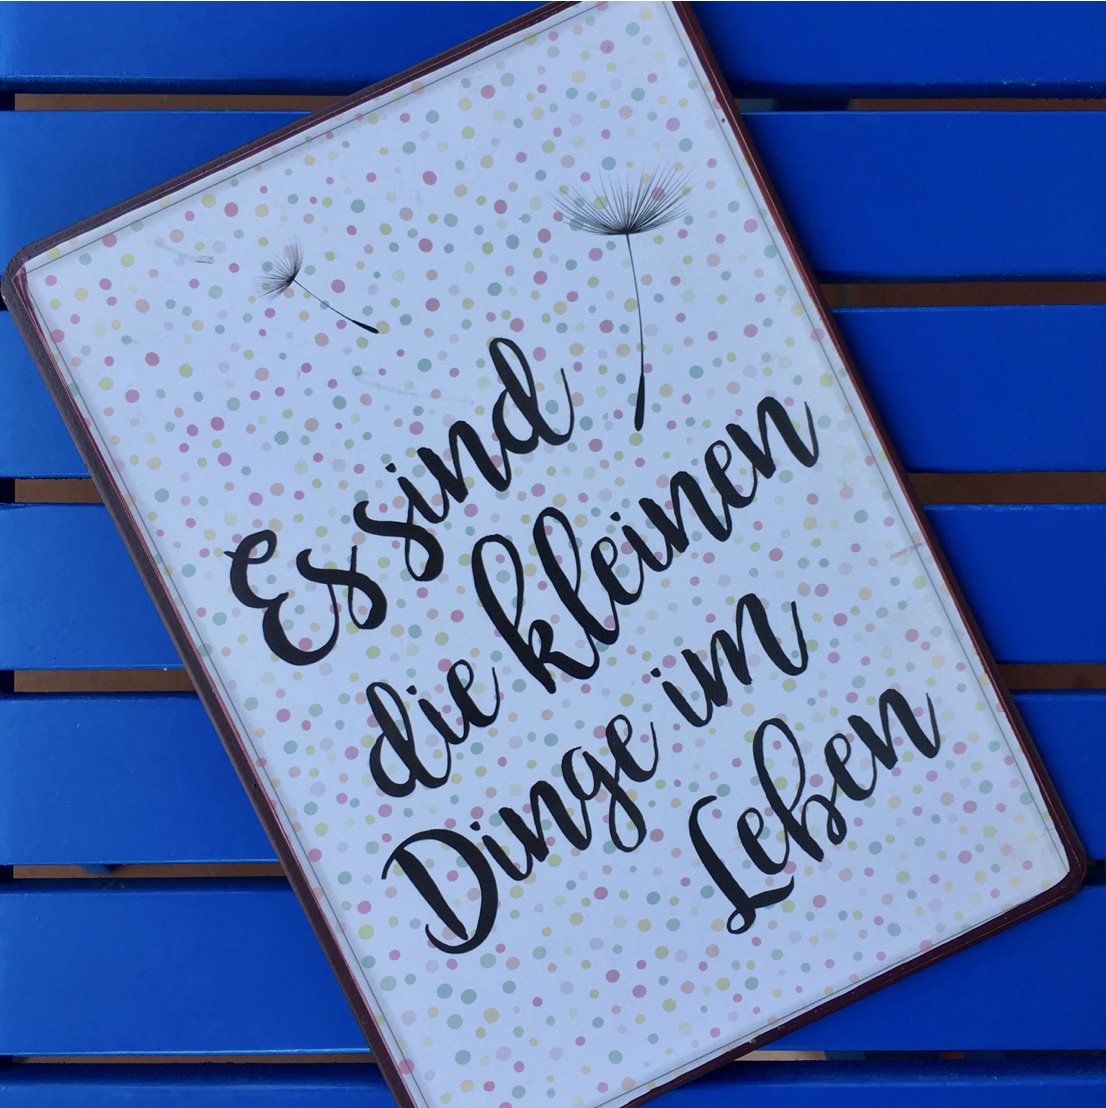 Es sind
die kleinen
Dinge im
Leben